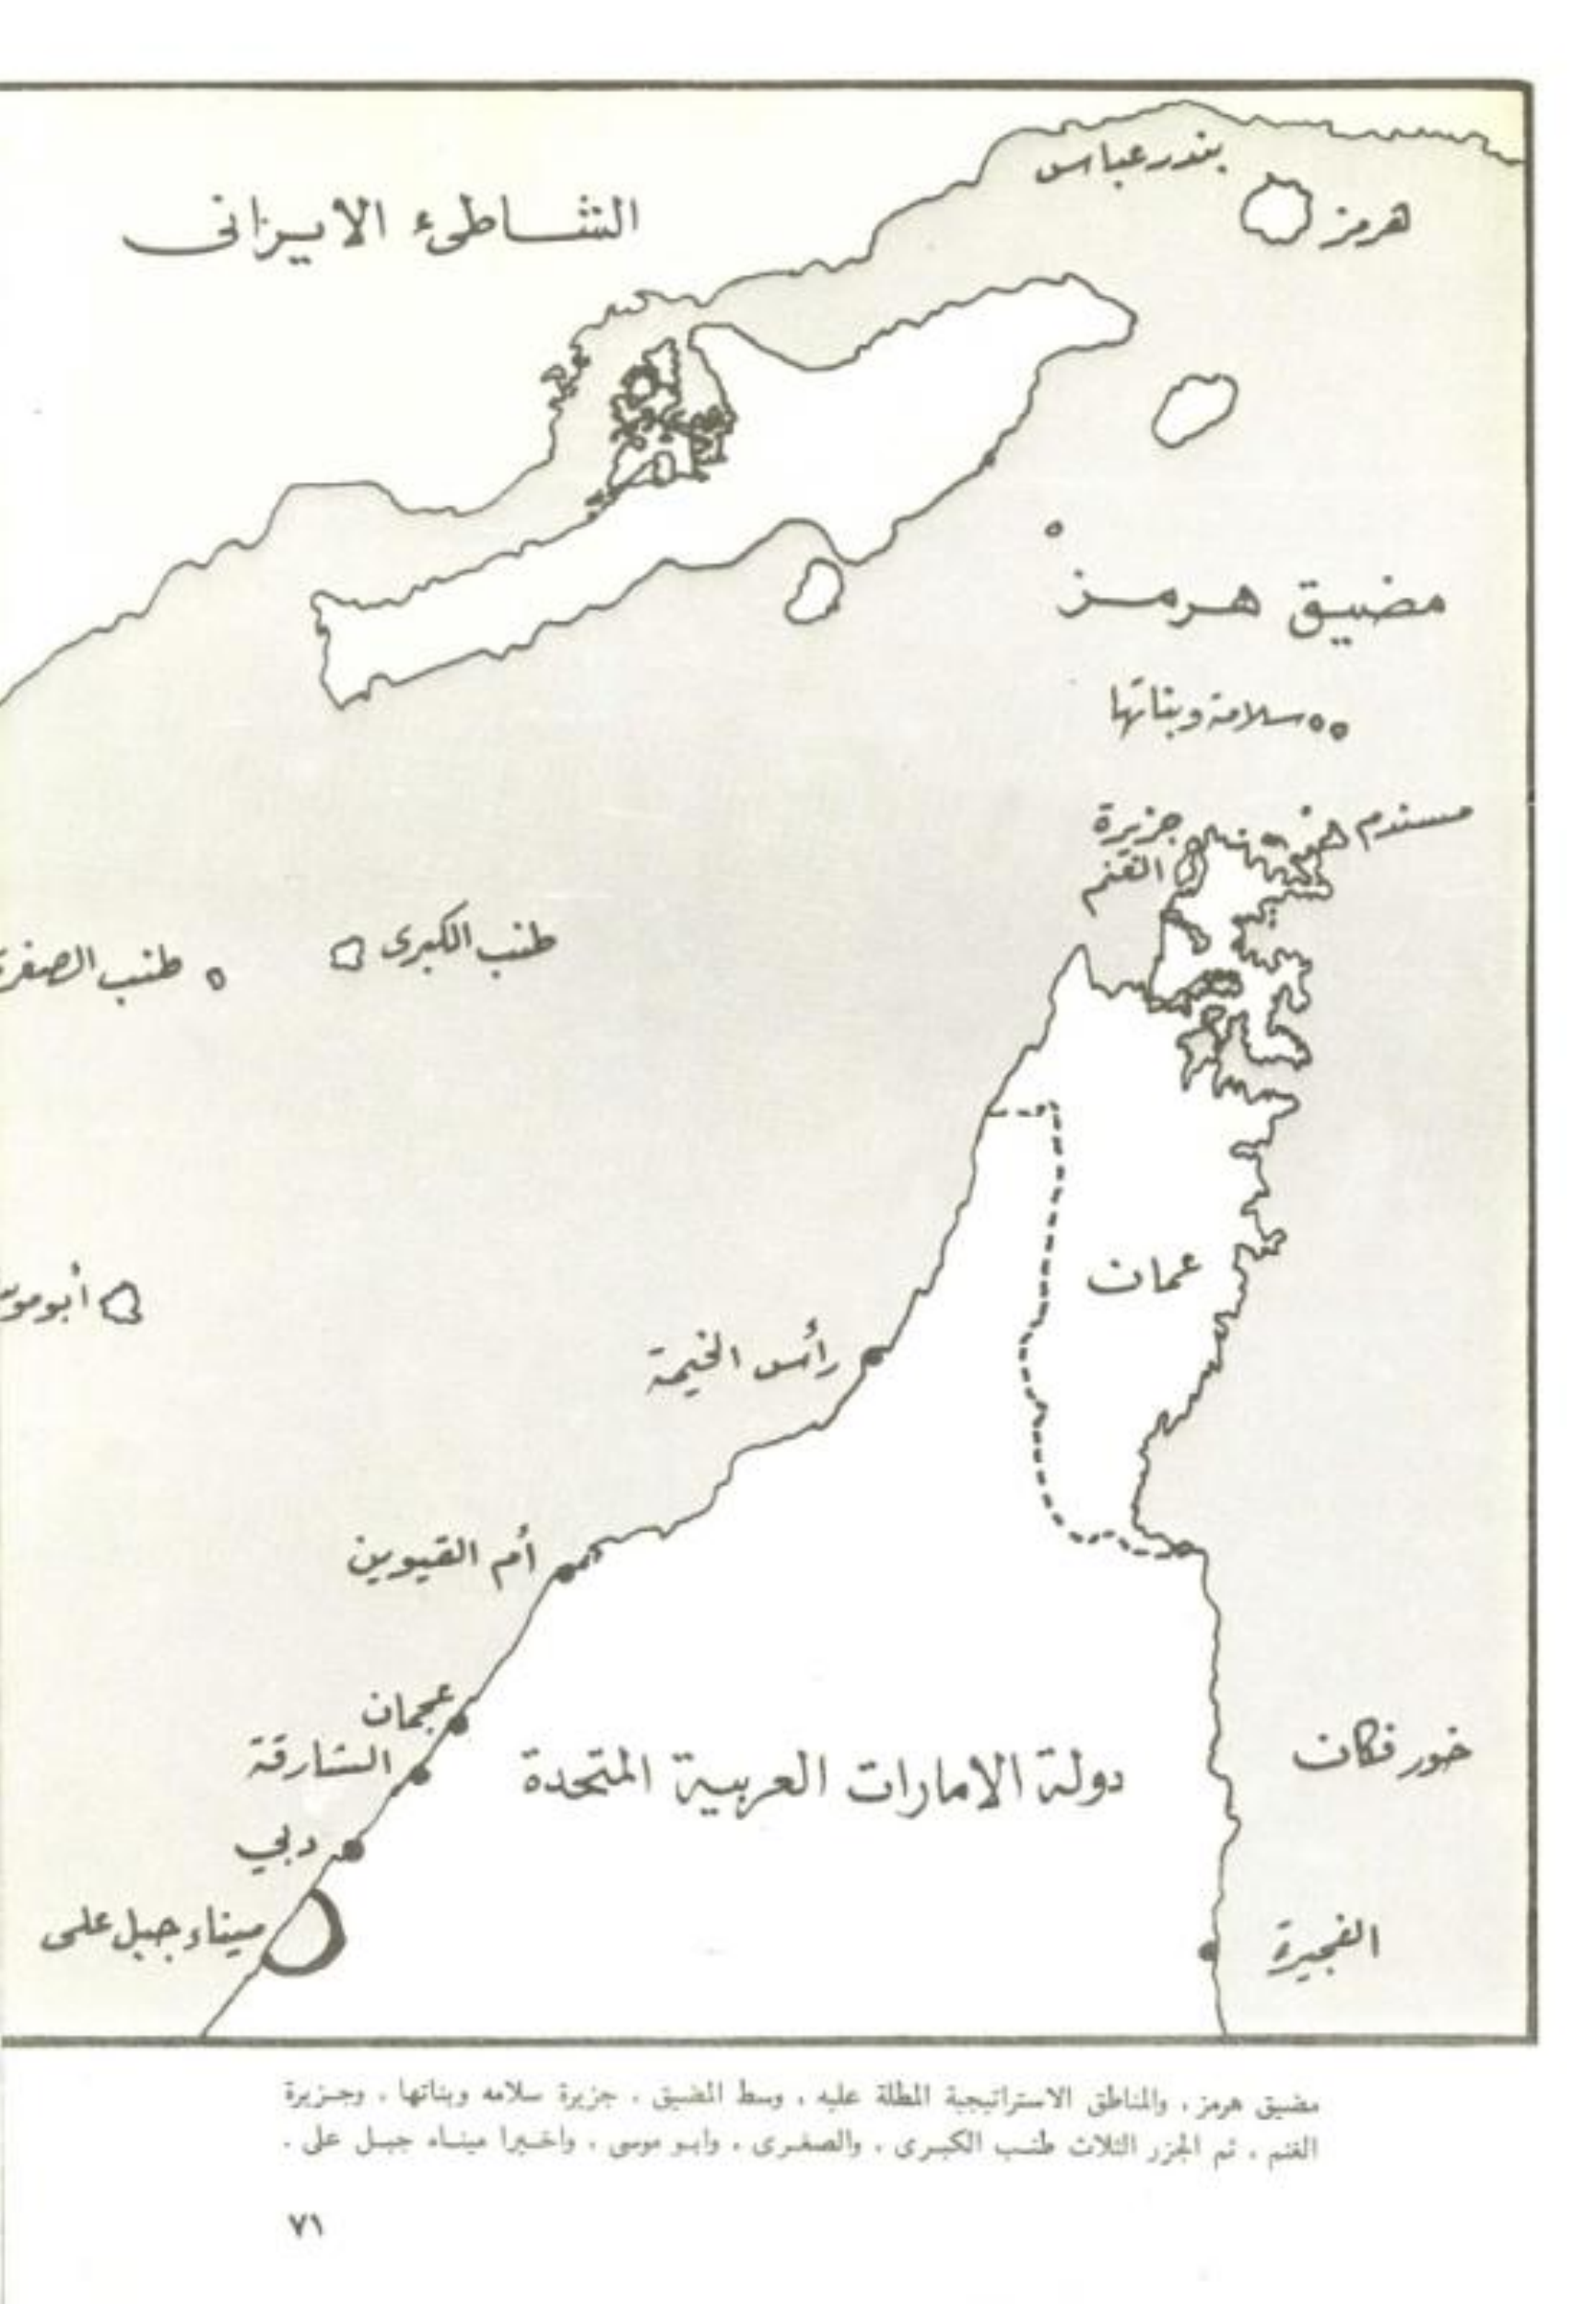 بندر عباس
هرمز
الشاطىء الايرانى
مضيق هرمز
سلامة وبناتها
مسندم
جزيرة
الغنم
طنب الكبرى
طنب الصغرى
أبو موسى
عمان
رأس الخيمة
أم القيوين
عجمان
الشارقة
دبي
ميناء جبل على
دولة الامارات العربية المتحدة
خور فكان
الفجيرة
مضيق هرمز ، والمناطق الاستراتيجية المطلة عليه ، وسط المضيق ، جزيرة سلامه وبناتها ، وجزيرة
الغنم ، ثم الجزر الثلاث طنب الكبرى ، والصغرى ، وابو موسى ، واخيرا ميناء جبل على .
٧١